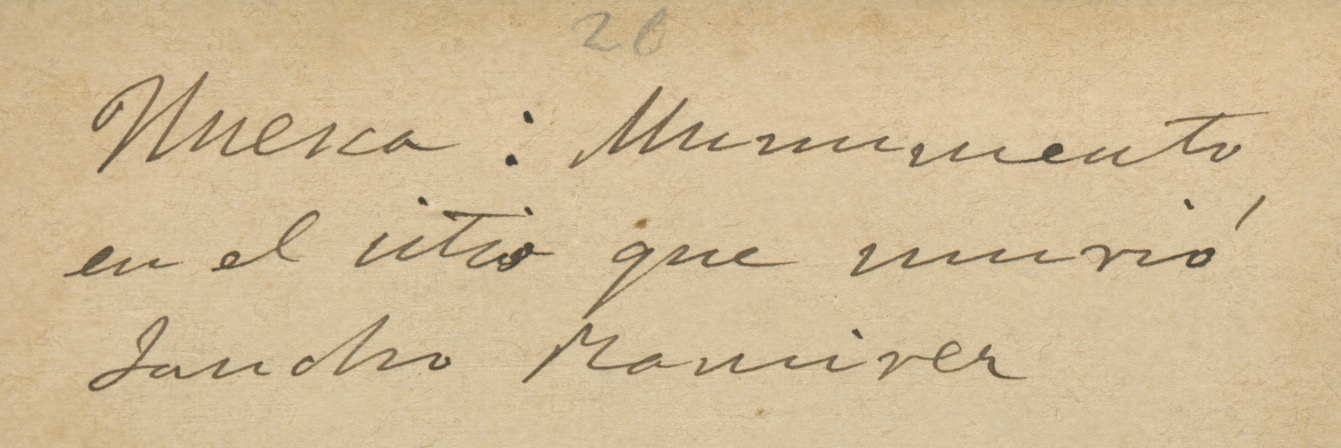 26
Huesca: Monumento
en el sitio que murió
Sancho Ramirez